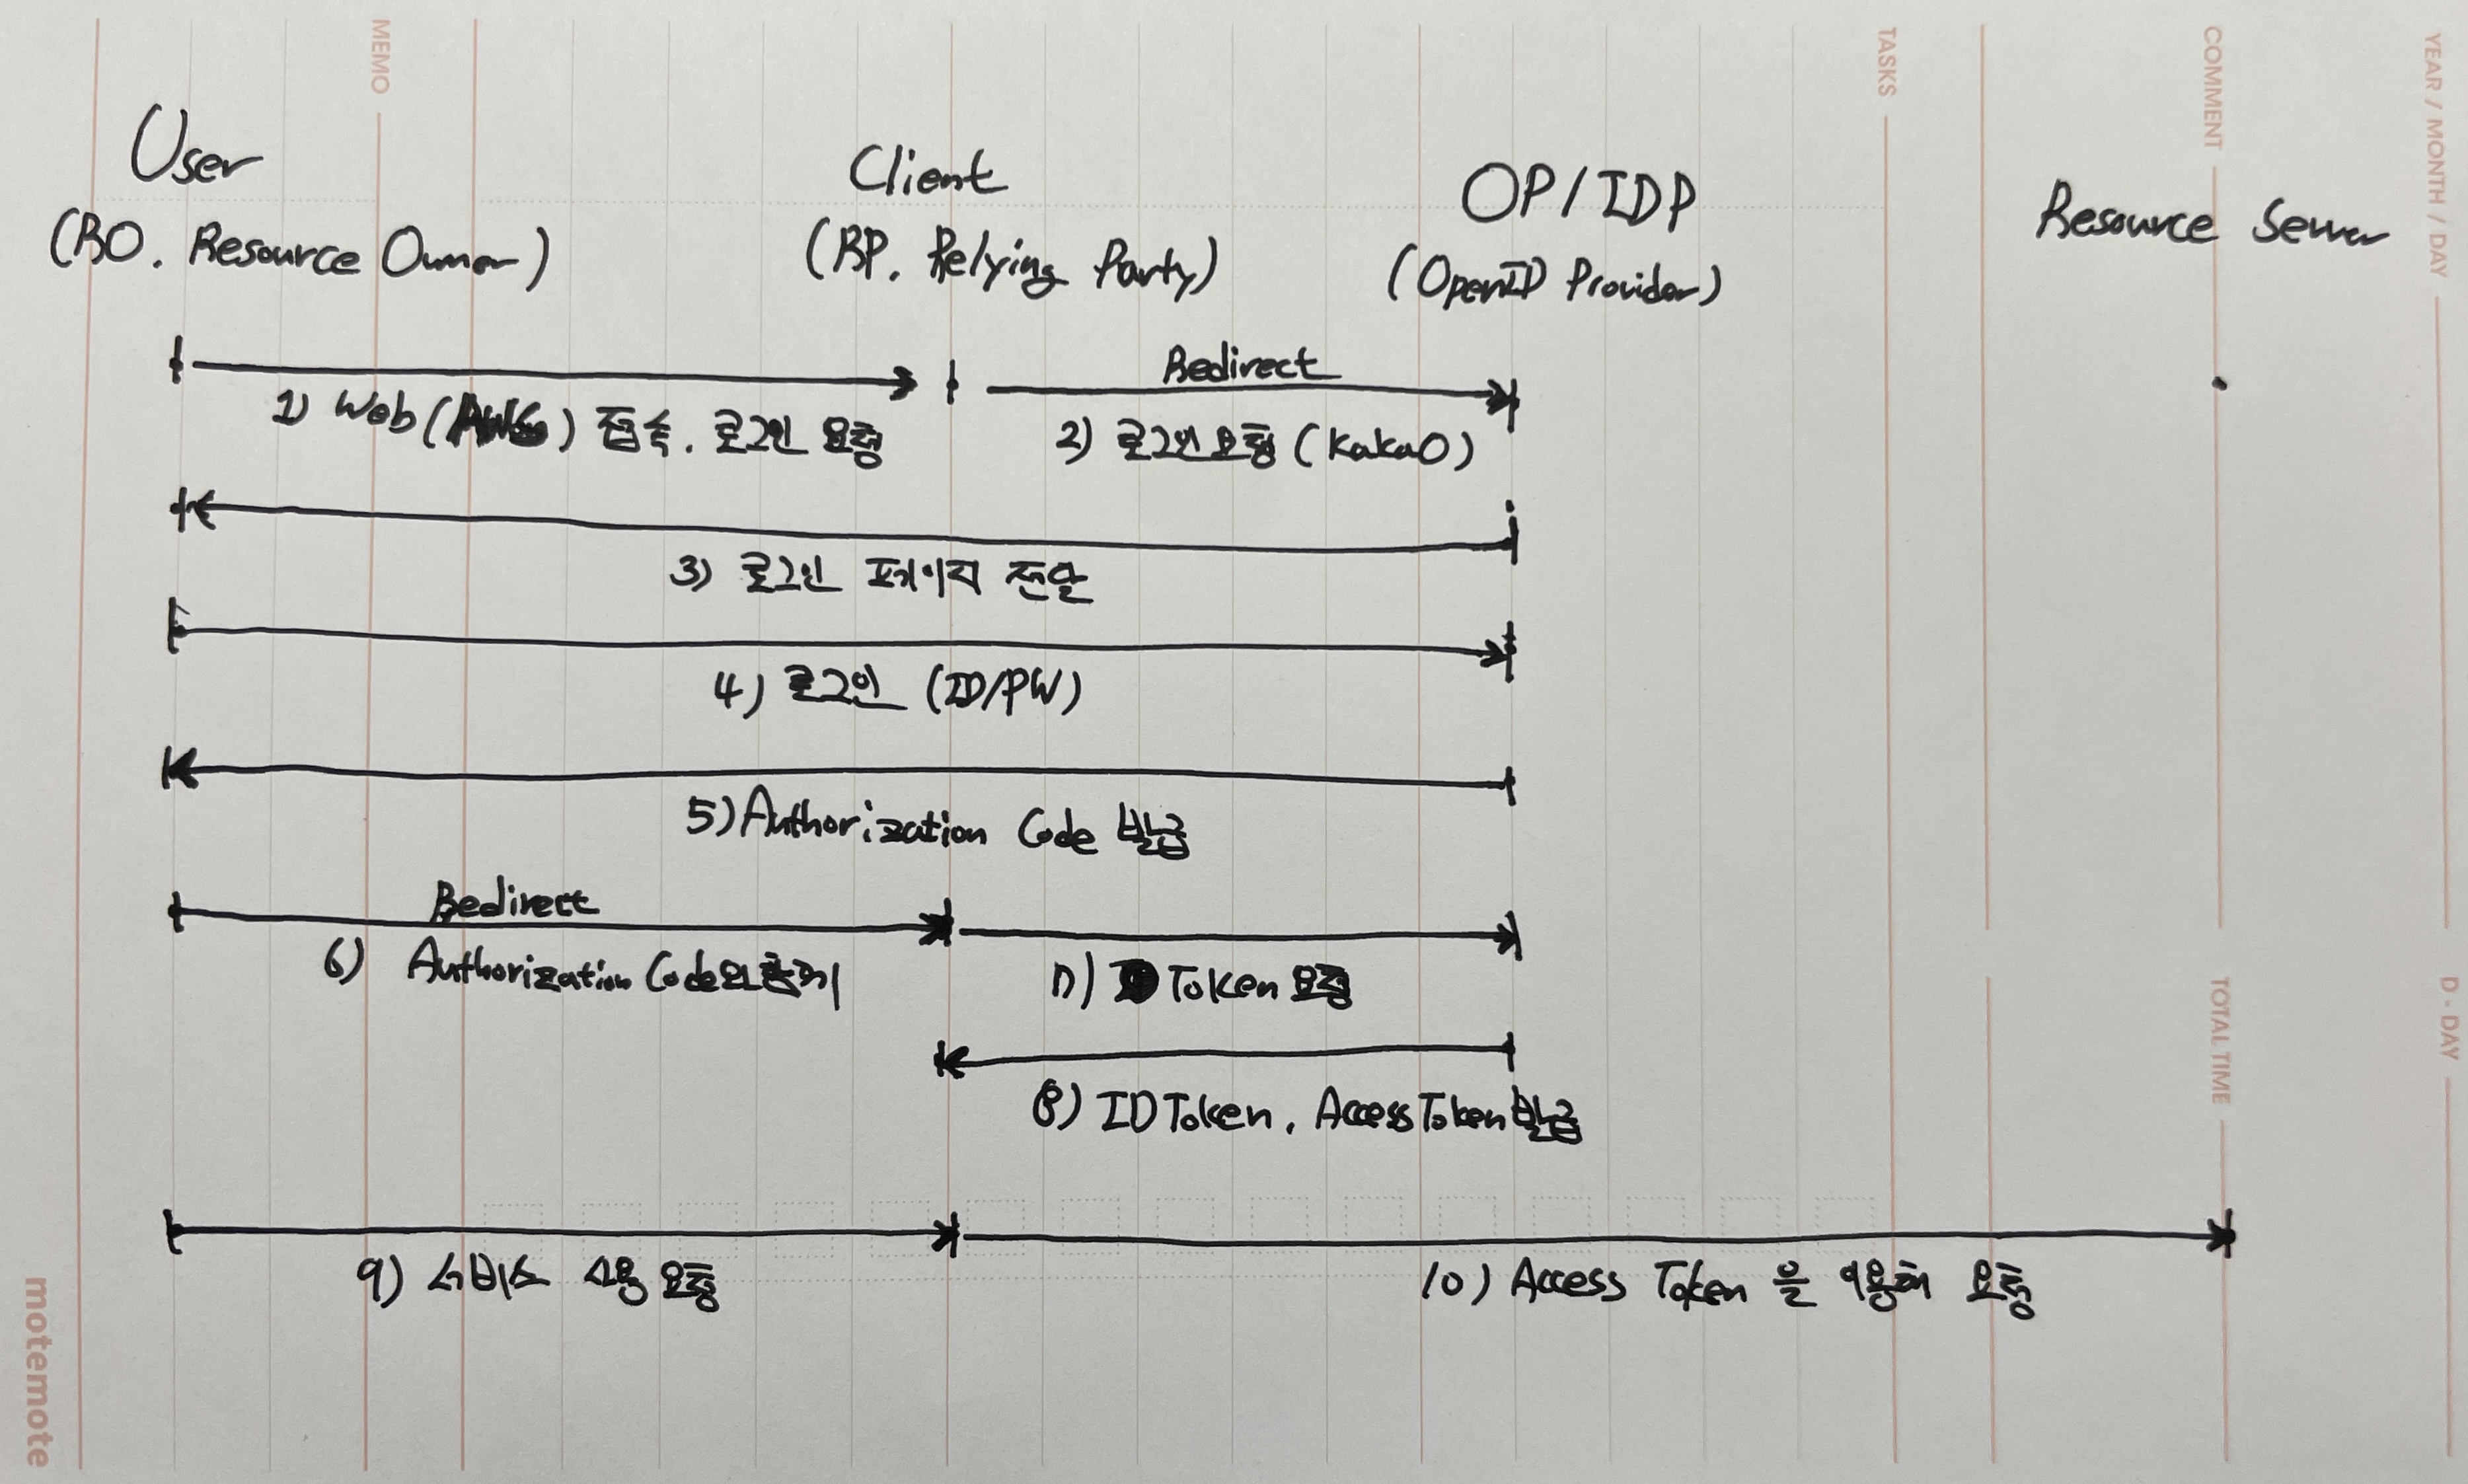 MEMO
TASKS
COMMENT
YEAR / MONTH / DAY
User
(RO. Resource Owner)
Client
(RP. Relying Party)
OP/IDP
(OpenID Provider)
Resource Server
1) Web ( ) 접속. 로그인 요청
Redirect
2) 로그인 요청 (KakaO)
3) 로그인 페이지 전달
4) 로그인 (ID/PW)
5) Authorization Code 발급
Redirect
6) Authorization Code와 함께
7) Token 요청
8) ID Token. Access Token 발급
9) 서비스 사용 요청
10) Access Token 을 이용해 요청
TOTAL TIME
D - DAY
motemote